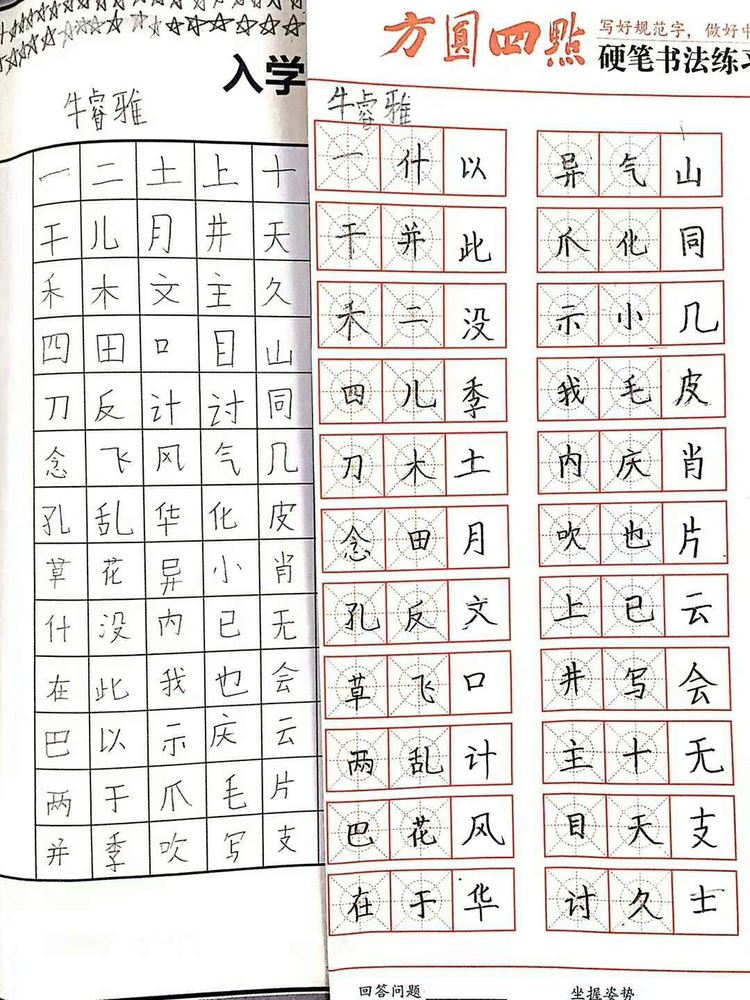 入学
牛睿雅
一二土上十
干儿月井天
禾木文主久
四田口目山
刀反计讨同
念飞风气几
孔乱华化皮
草花异小肖
什没内已无
在此我也会
巴以示庆云
两于爪毛片
并季吹写支
方圓四點
写好规范字，做好中
硬笔书法练习
牛睿雅
一什以
干并此
禾二没
四儿季
刀木土
念田月
孔反文
草飞口
两乱计
巴花风
在于华
异气山
爪化同
示小几
我毛皮
内庆肖
吹也片
上已云
井写会
主十无
目天支
讨久士
回答问题
坐握姿势